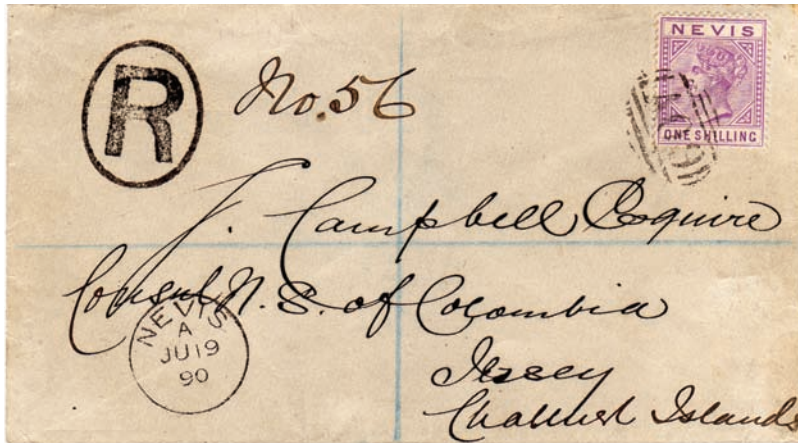 NEVIS
ONE SHILLING
R
No. 56
J. Campbell Esquire
Consul U. S. of Colombia
Jersey
Channel Islands
NEVIS
A
JU 19
90